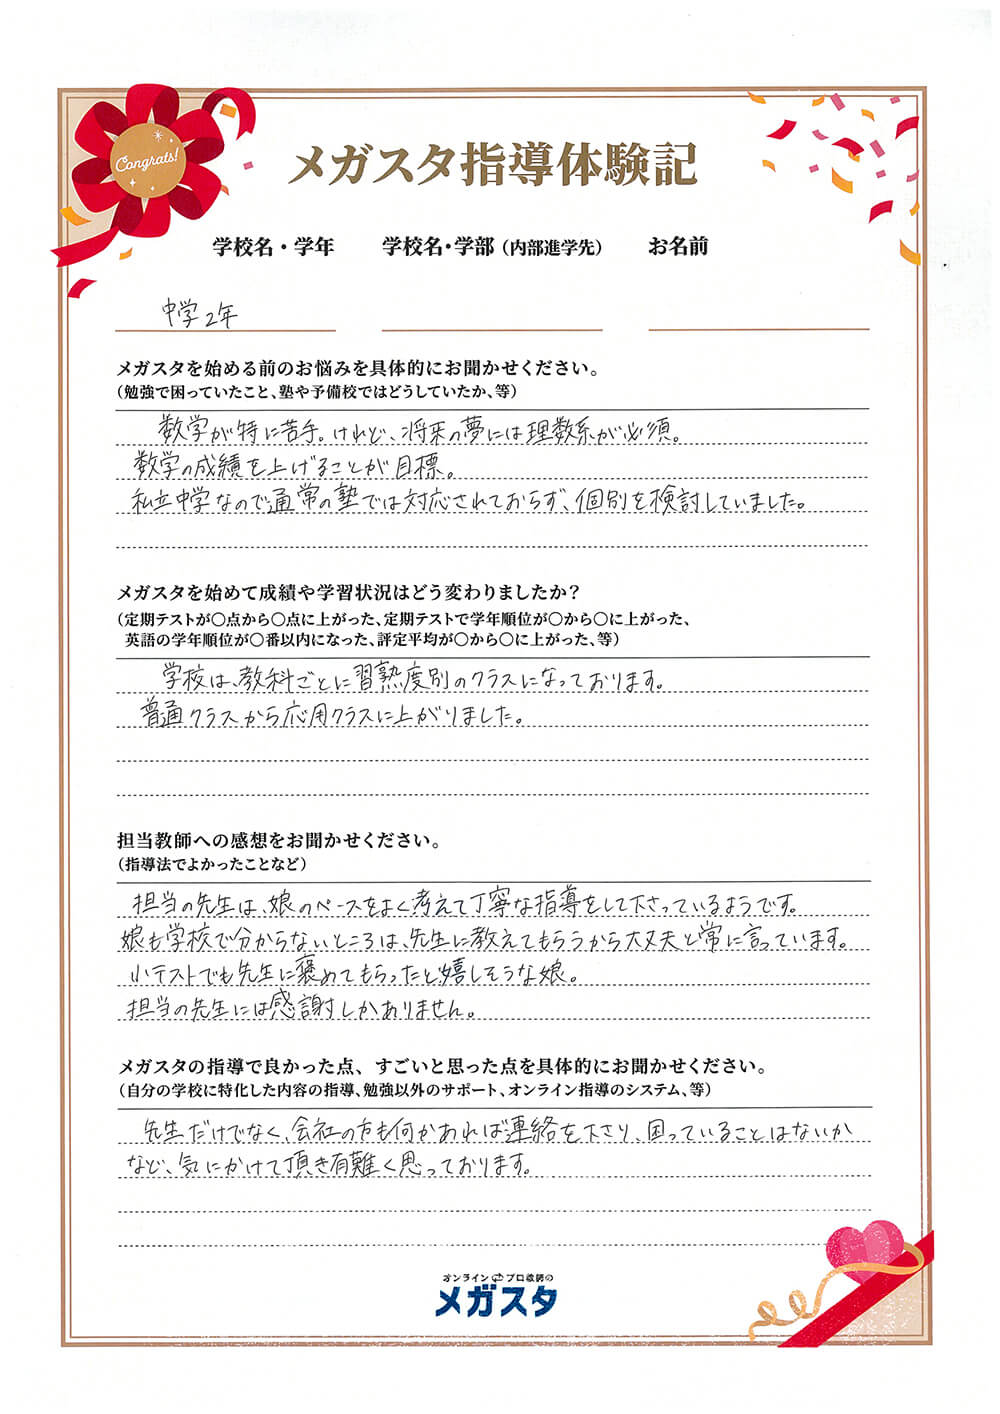 Congrats!
メガスタ指導体験記
学校名・学年 学校名・学部（内部進学先） お名前
中学2年
メガスタを始める前のお悩みを具体的にお聞かせください。
（勉強で困っていたこと、塾や予備校ではどうしていたか、等）
数学が特に苦手。けれど、将来の夢には理数系が必須。
数学の成績を上げることが目標。
私立中学なので通常の塾では対応されておらず、個別を検討していました。
メガスタを始めて成績や学習状況はどう変わりましたか？
（定期テストが〇点から〇点に上がった、定期テストで学年順位が〇から〇に上がった、
英語の学年順位が〇番以内になった、評定平均が〇から〇に上がった、等）
学校は、教科ごとに習熟度別のクラスになっております。
普通クラスから応用クラスに上がりました。
担当教師への感想をお聞かせください。
（指導法でよかったことなど）
担当の先生は、娘のペースをよく考えて丁寧な指導をして下さっているようです。
娘も学校で分からないところは、先生に教えてもらうから大丈夫と常に言っています。
小テストでも先生に褒めてもらったと嬉しそうな娘。
担当の先生には感謝しかありません。
メガスタの指導で良かった点、すごいと思った点を具体的にお聞かせください。
（自分の学校に特化した内容の指導、勉強以外のサポート、オンライン指導のシステム、等）
先生だけでなく、会社の方も何かあれば連絡を下さり、困っていることはないか
など、気にかけて頂き有難く思っております。
オンライン プロ教師の
メガスタ